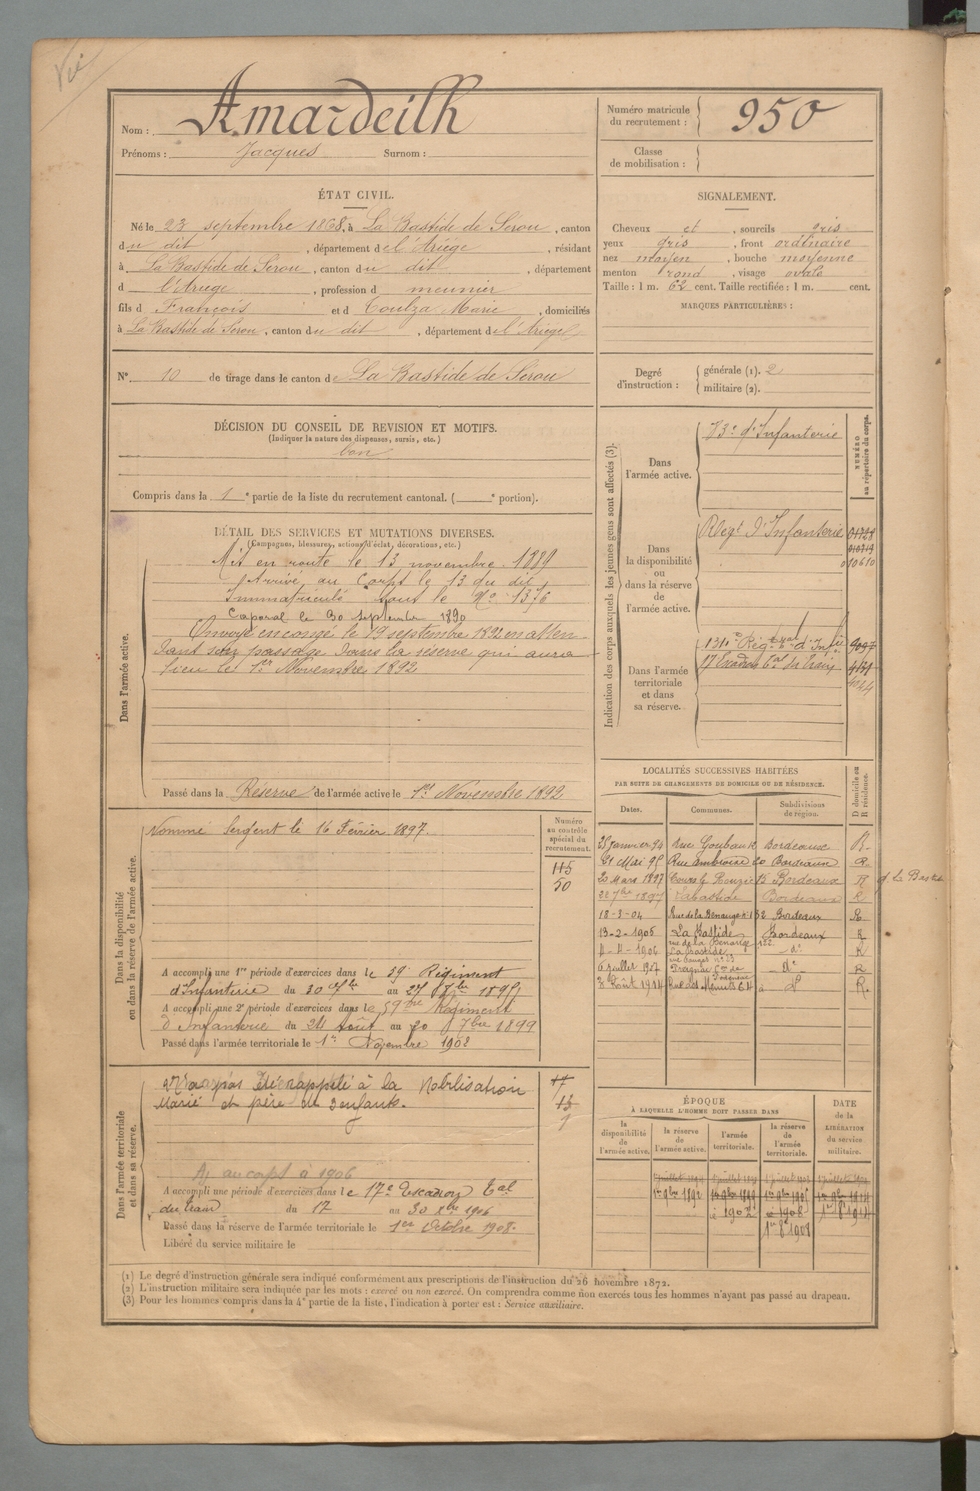 Vu
Nom : Amardeilh
Prénoms : Jacques Surnom :
Numéro matricule du recrutement : 950
Classe de mobilisation :
ÉTAT CIVIL.
Né le 23 septembre 1868, à La Bastide de Sérou, canton
du dit, département de l'Ariège, résidant
à La Bastide de Serou, canton du dit, département
d l'Ariège, profession d meunier
fils d François et d Toulza Marie, domiciliés
à La Bastide de Sérou, canton du dit, département de l'Ariège
N° 10 de tirage dans le canton de La Bastide de Serou
SIGNALEMENT.
Cheveux et, sourcils gris
yeux gris, front ordinaire
nez moyen, bouche moyenne
menton rond, visage ovale
Taille : 1 m. 62 cent. Taille rectifiée : 1 m. cent.
MARQUES PARTICULIÈRES :
Degré d'instruction : générale (1). 2
militaire (2).
DÉCISION DU CONSEIL DE REVISION ET MOTIFS.
(Indiquer la nature des dispenses, sursis, etc.)
bon
Compris dans la 1e partie de la liste du recrutement cantonal. ( e portion).
DÉTAIL DES SERVICES ET MUTATIONS DIVERSES.
(Campagnes, blessures, actions d'éclat, décorations, etc.)
Dans l'armée active.
Mis en route le 13 novembre 1889
Arrivé au Corps le 13 du dit
Immatriculé sous le No 1376
Caporal le 30 septembre 1890
Envoyé en congé le 19 septembre 1892 en atten
dant son passage dans la réserve qui aura
lieu le 1er Novembre 1892
Passé dans la Réserve de l'armée active le 1er Novembre 1892
Indication des corps auxquels les jeunes gens sont affectés (3).
NUMÉRO au répertoire du corps.
Dans l'armée active.
d'Infanterie
Dans la disponibilité ou dans la réserve de l'armée active.
Regt d'Infanterie
Dans l'armée territoriale et dans sa réserve.
17 Escadron
LOCALITÉS SUCCESSIVES HABITÉES
PAR SUITE DE CHANGEMENTS DE DOMICILE OU DE RÉSIDENCE.
Dates. Communes. Subdivisions de région. D domicile ou R résidence.
25 Janvier 94 Rue Bordeaux R
21 Mai 95 Rue Ambroise 20 Bordeaux R
20 Mars 1897 Cours 15 Bordeaux R
22 7bre 1897 Labastide Bordeaux R
18-3-04 Rue de la Benauge Bordeaux R
13-2-1905 La Bastide Bordeaux R
rue de la Benauge 122
1906 La Bastide do R
6 Juillet 1907 do R
8 Août 1914 Rue des Menuts 64 R
Dans la disponibilité ou dans la réserve de l'armée active.
Numéro au contrôle spécial du recrutement.
115
50
Nommé Sergent le 16 Février 1897.
A accompli une 1re période d'exercices dans le 59e Régiment
d'Infanterie du 30 au 27 1895
A accompli une 2e période d'exercices dans le 59me Régiment
d'Infanterie du 24 août au 20 7bre 1899
Passé dans l'armée territoriale le 1er Novembre 1902
Dans l'armée territoriale et dans sa réserve.
N'a pas été rappelé à la Mobilisation
Marié et père de enfants.
Aj. au corps à 1906
A accompli une période d'exercices dans le 17e Escadron Eal
du train du 17 au 30 Xbre 1906
Passé dans la réserve de l'armée territoriale le 1er Octobre 1908
Libéré du service militaire le
ÉPOQUE
À LAQUELLE L'HOMME DOIT PASSER DANS
DATE de la LIBÉRATION du service militaire.
la disponibilité de l'armée active. la réserve de l'armée active. l'armée territoriale. la réserve de l'armée territoriale.
1er 9bre 1892 1er 9bre 1899
(1) Le degré d'instruction générale sera indiqué conformément aux prescriptions de l'instruction du 26 novembre 1872.
(2) L'instruction militaire sera indiquée par les mots : exercé ou non exercé. On comprendra comme non exercés tous les hommes n'ayant pas passé au drapeau.
(3) Pour les hommes compris dans la 4e partie de la liste, l'indication à porter est : Service auxiliaire.